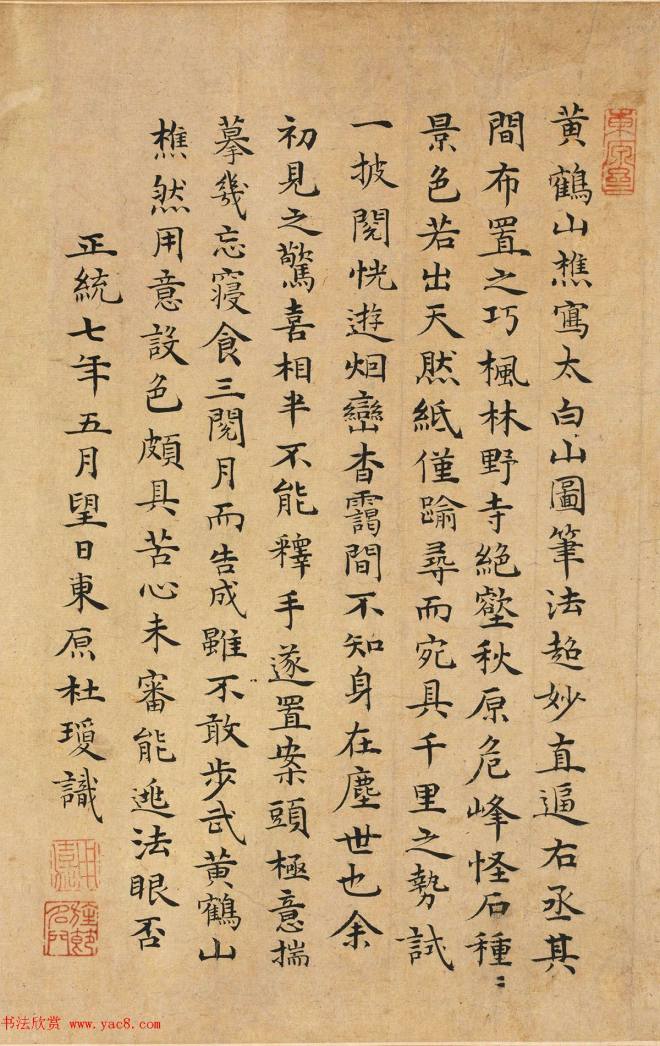 黄鶴山樵寫太白山圖筆法超妙直逼右丞其
間布置之巧楓林野寺絕壑秋原危峰怪石種:
景色若出天然紙僅踰尋而宛具千里之勢試
一披閱恍遊烟巒杳靄間不知身在塵世也余
初見之驚喜相半不能釋手遂置案頭極意揣
摹幾忘寢食三閱月而告成雖不敢步武黄鶴山
樵然用意設色頗具苦心未審能逃法眼否
正統七年五月望日東原杜瓊識
书法欣赏 www.yac8.com